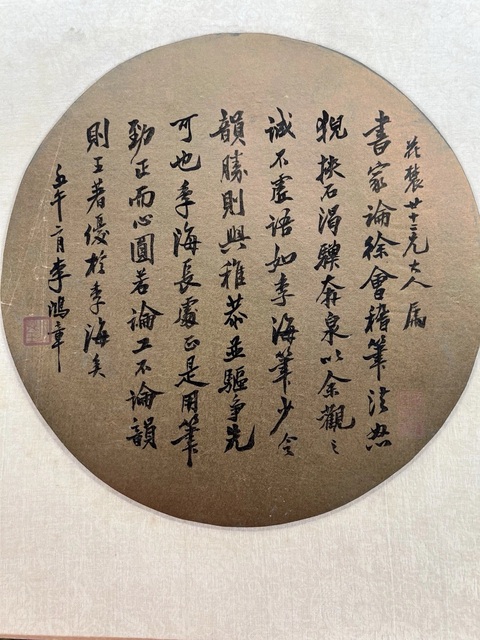 兄大人屬
書家論徐會稽筆法怒
猊抉石渴驥奔泉以余觀之
誠不虛語如季海筆少令
韻勝則與稚恭並驅爭先
可也季海長處正是用筆
勁正而心圓若論工不論韻
則王著優於季海矣
壬午二月李鴻章